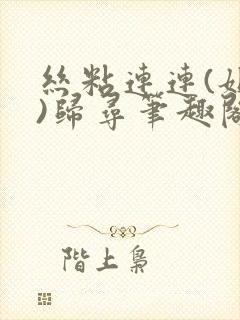 絲粘連連(
)歸尋筆趣閣
階上梟